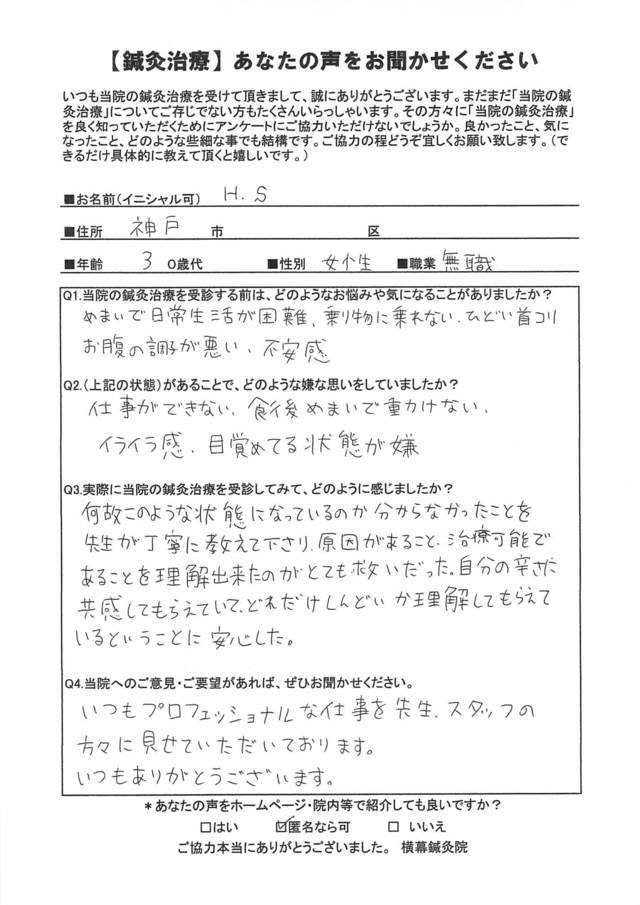 【鍼灸治療】あなたの声をお聞かせください
いつも当院の鍼灸治療を受けて頂きまして、誠にありがとうございます。まだまだ「当院の鍼
灸治療」についてご存じでない方もたくさんいらっしゃいます。その方々に「当院の鍼灸治療」
を良く知っていただくためにアンケートにご協力いただけないでしょうか。良かったこと、気に
なったこと、どのような些細な事でも結構です。ご協力の程どうぞ宜しくお願い致します。（で
きるだけ具体的に教えて頂くと嬉しいです。）
■お名前（イニシャル可） H.S
■住所 神戸 市 区
■年齢 3 0歳代 ■性別 女性 ■職業 無職
Q1.当院の鍼灸治療を受診する前は、どのようなお悩みや気になることがありましたか？
めまいで日常生活が困難、乗り物に乗れない.ひどい首コリ
お腹の調子が悪い、不安感
Q2.（上記の状態）があることで、どのような嫌な思いをしていましたか？
仕事ができない.食後めまいで動けない.
イライラ感.目覚めてる状態が嫌
Q3.実際に当院の鍼灸治療を受診してみて、どのように感じましたか？
何故このような状態になっているのか分からなかったことを
先生が丁寧に教えて下さり.原因があること、治療可能で
あることを理解出来たのがとても救いだった。自分の辛さに
共感してもらえていて、どれだけしんどいか理解してもらえて
いるということに安心した。
Q4.当院へのご意見・ご要望があれば、ぜひお聞かせください。
いつもプロフェッショナルな仕事を先生.スタッフの
方々に見せていただいております。
いつもありがとうございます。
＊あなたの声をホームページ・院内等で紹介しても良いですか？
□はい ☑匿名なら可 □ いいえ
ご協力本当にありがとうございました。 横幕鍼灸院